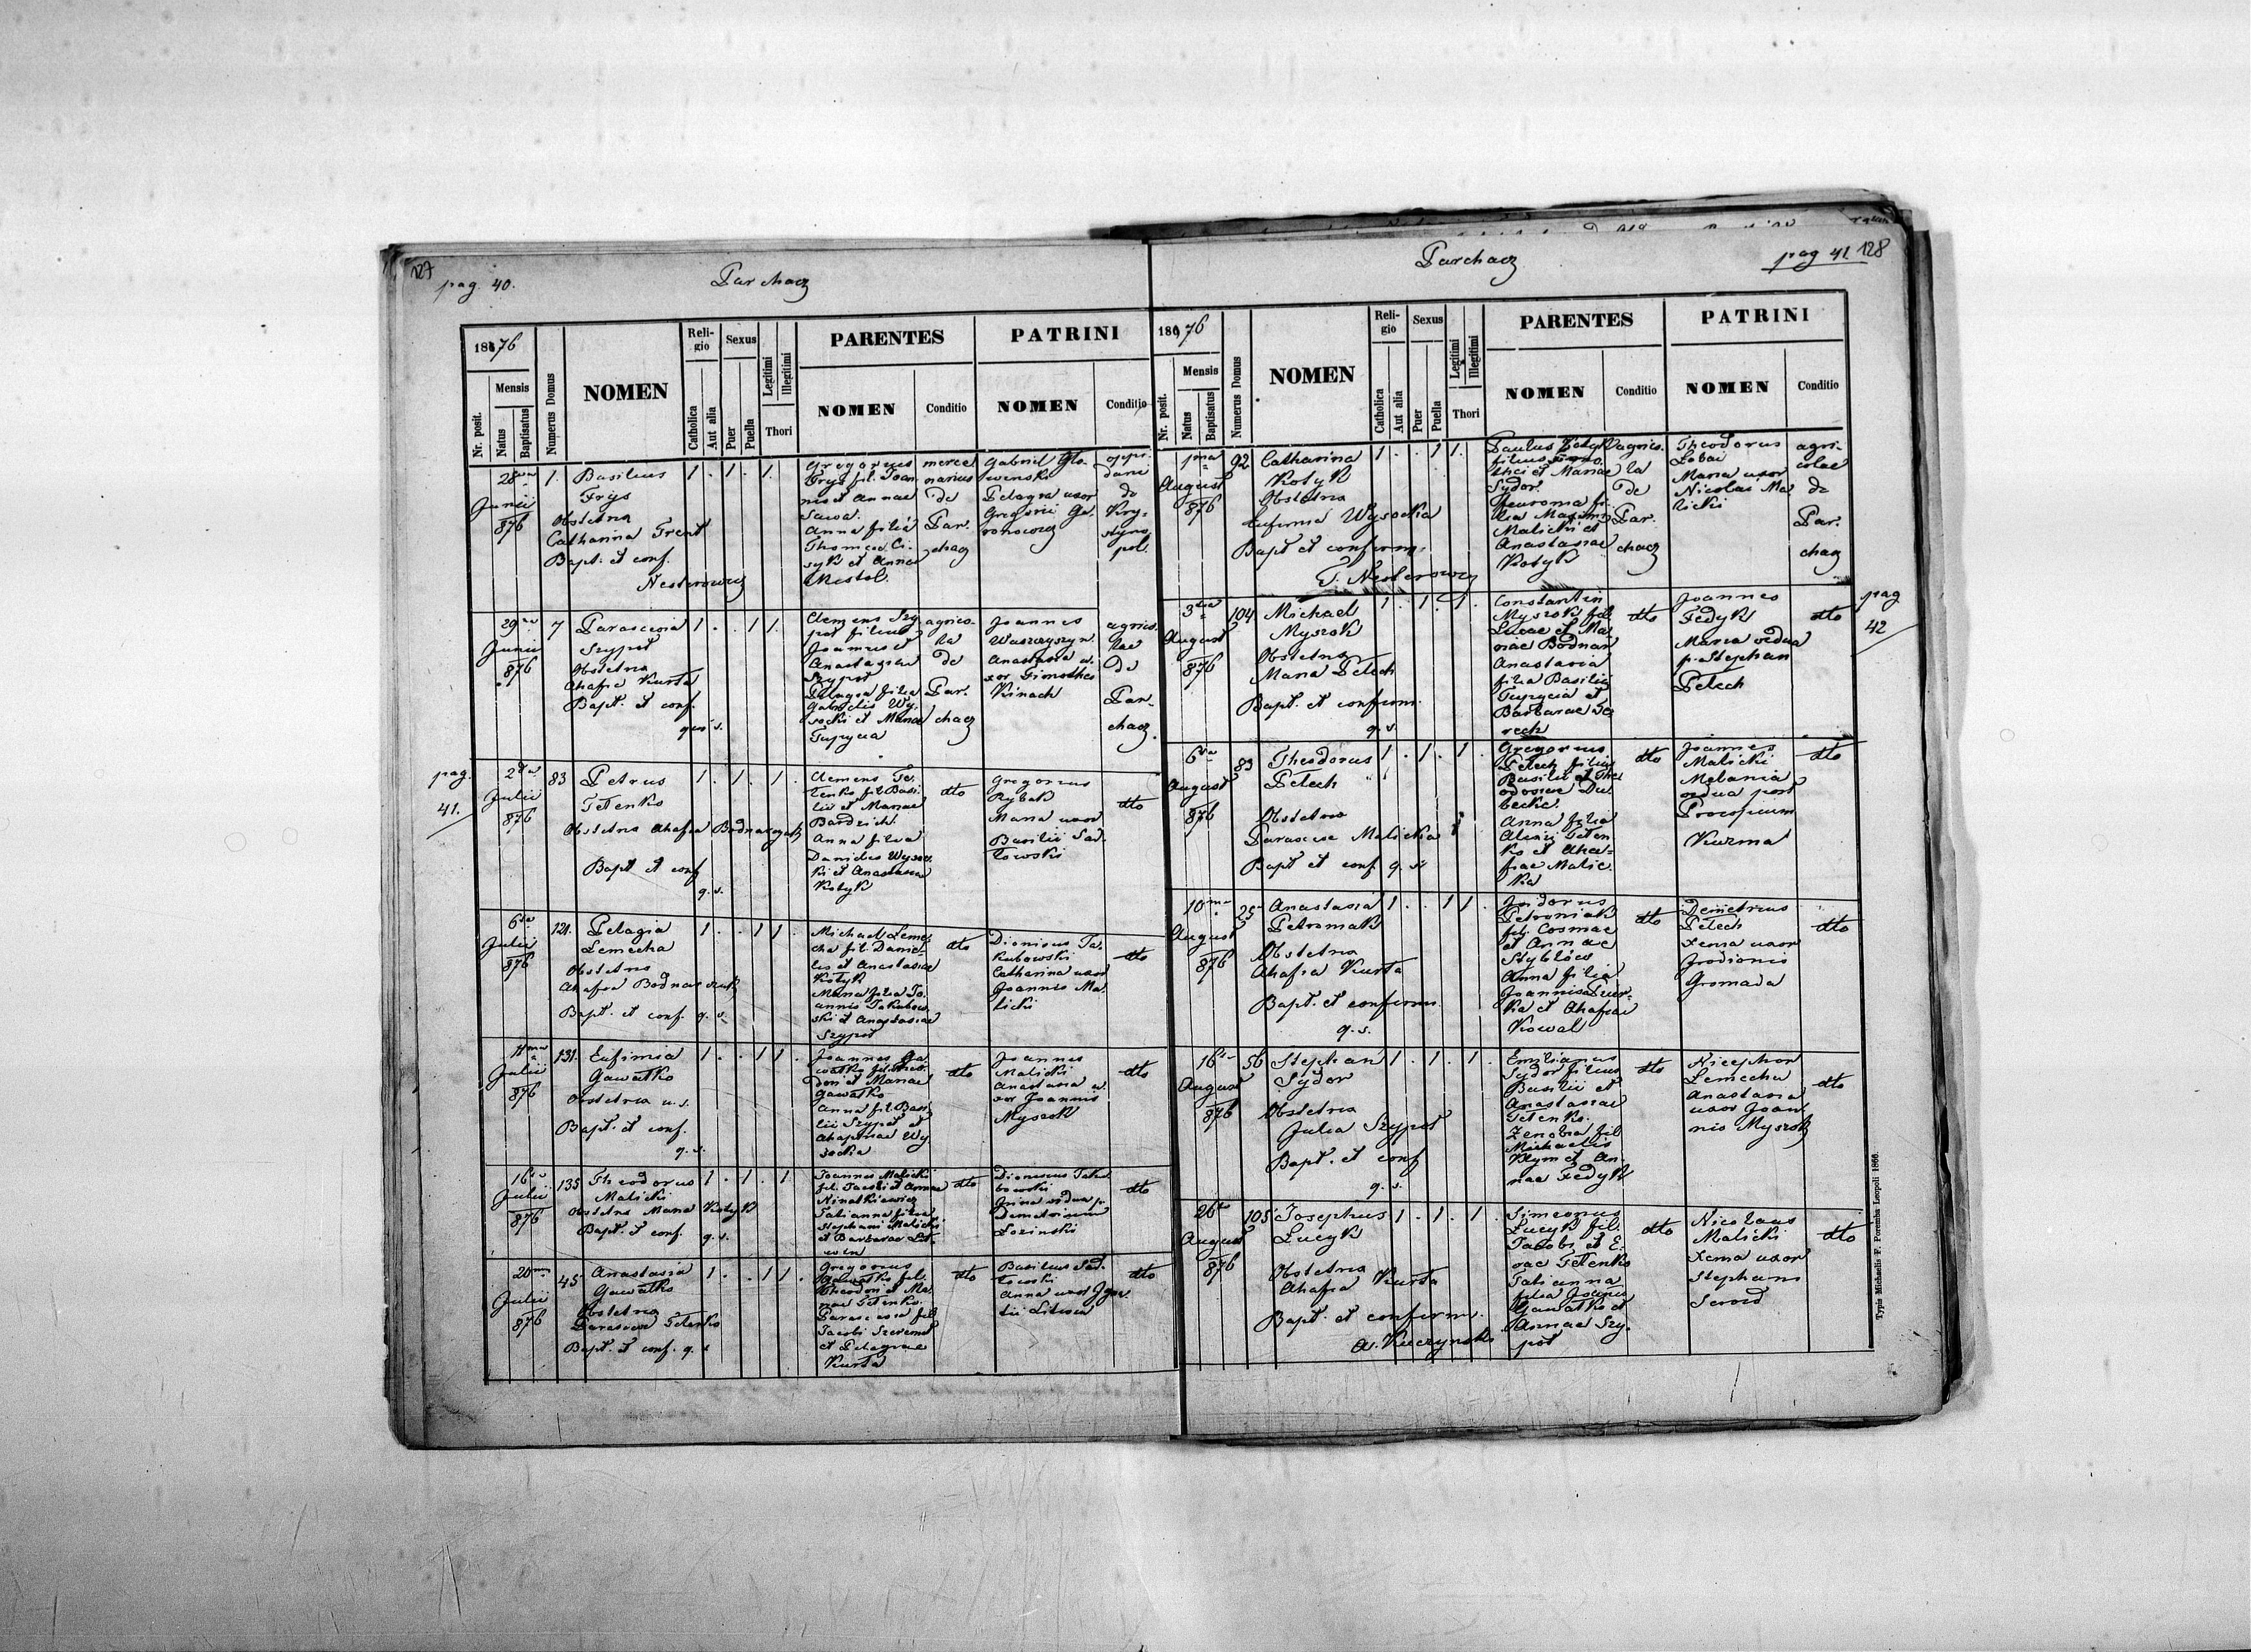 127
pag. 40.
Parchacz
1876
Nr. posit.
Mensis
Natus
Baptisatus
Numerus Domus
NOMEN
Religio
Catholica
Aut alia
Sexus
Puer
Puella
Legitimi
Illegitimi
Thori
PARENTES
NOMEN
Conditio
PATRINI
NOMEN
Conditio
28
Junii
876
1.
Basilius
Frys
Obstetrix
Catharina
Bapt. et conf.
Nesterowicz
1 . 1 . 1.
Gregorius
Frys fil. Joan
nis et Annae
Sawa.
Anna filia
Thomae Ci-
syk et Annae
merce
narius
de
Par.
chacz
Gabriel
Pelagia uxor
Gregorii
oppi
dani
de
Kry-
styno
pol.
29
Junii
876
7
Parascevia
Szypot
Obstetrix
Ahafia Kurta
Bapt. et conf.
qui s.
1 . . 1 1.
Clemens Szy
pot filius
Joannis et
Anastasiae
Szypot
Pelagia filia
Gabrielis Wy
socki et Mariae
Tupycia
agrico-
la
de
Par.
chacz
Joannes
Waszczyszyn
Anastasia u-
xor Timothei
Kinach
agrico
lae
de
Par-
chacz.
pag.
41.
2
Julii
876
83
Petrus
Tetenko
Obstetrix Ahafia Bodnarczuk
Bapt et conf
q. s.
1 . 1 . 1 .
Clemens Te-
tenko fil Basi
lii et Mariae
Anna filia
Danielis Wysoc
ki et Anastasiae
Kotyk
dto
Gregorius
Rybak
Maria uxor
Basilii Sad-
lowski
dto
6
Julii
876
121.
Pelagia
Lemecha
Obstetrix
Ahafia Bodnarczuk
Bapt. et conf. q. s.
1 . . 1 1 .
Michael Leme-
cha fil Danie-
lis et Anastasiae
Kotyk
Maria filia Jo-
annis Jakubow
ski et Anastasiae
Szypot
dto
Dionisius Ja-
kubowski
Catharina uxor
Joannis Ma-
licki
dto
11
Julii
876
131.
Eufimia
Gawatko
Obstetrix u. s.
Bapt. et conf.
q. s.
1 . . 1 1 .
Joannes Ga
watko fil Theo
dori et Mariae
Gawatko
Anna fil Basi
lii Szypot et
Ahaphiae Wy
socka
dto
Joannes
Malicki
Anastasia u-
xor Joannis
Myszok
dto
16
Julii
876
135
Theodorus
Malicki
Obstetrix Maria Kotyk
Bapt. et conf. q. s.
1 . 1 . 1
Joannes Malicki
fil. Jacobi et Annae
Tatianna filia
Stephani Malicki
et Barbarae Lit-
win
dto
Dionisius Jaku
bowski
Anna vidua p.
Demetrium
Lozinski
dto
20
Julii
876
45
Anastasia
Gawatko
Obstetrix
Parascevia Tetenko
Bapt. et conf. q. s
1 . . 1 1 .
Gregorius
Gawatko fil.
Theodori et Ma-
riae Tetenko.
Parascevia fil
Jacobi Szeremet
et Pelagiae
Kurta
dto
Basilius Sad-
lowski
Anna uxor Igna
tii Litwin
dto
Parchacz
pag 41. 128
1876
Nr. posit.
Mensis
Natus
Baptisatus
Numerus Domus
NOMEN
Religio
Catholica
Aut alia
Sexus
Puer
Puella
Legitimi
Illegitimi
Thori
PARENTES
NOMEN
Conditio
PATRINI
NOMEN
Conditio
1
August
876
92
Catharina
Kotyk
Obstetrix
Eufemia Wysocka
Bapt et confirm.
T. Nesterowicz
1 . . 1 1.
Paulus Kotyk
filius
et Mariae
Sydor.
filia Maximi
Malicki et
Anastasiae
Kotyk
agrico
la
de
Par.
chacz
Theodorus
Maria uxor
Nicolai Ma
licki
agri-
colae
de
Par.
chacz
3
August
876
104
Michael
Myszok
Obstetrix
Maria Pelech
Bapt. et confirm.
q. s.
1 . 1 . 1.
Constantin
Myszok fil
Lucae et Ma
riae Bodnar
Anastasia
filia Basilii
Tupycia et
Barbarae
dto
Joannes
Fedyk
Maria vidua
p. Stephan
Pelech
dto
pag
42
6
August
876
83
Theodorus
Pelech
Obstetrix
Parascevia Malicka
Bapt et conf q. s.
1 . 1 . 1 .
Gregorius
Pelech filius
Basilii et The
odosiae Du
Anna filia
Alexii Teten
ko et Aha-
fiae Malic-
ka
dto
Joannes
Malicki
Melania
vidua post
Procopium
Kuzma
dto
10
August
876
25
Anastasia
Petroniak
Obstetrix
Ahafia Kurta
Bapt. et confirm.
q. s.
1 . . 1 1 .
Isidorus
Petroniak
fil. Cosmae
et Annae
Anna filia
Joannis
et Ahafiae
Kowal
dto
Demetrius
Pelech
Xenia uxor
Irodionis
Gromada
dto
16
August
876
56
Stephan
Sydor
Obstetrix
Julia Szypot
Bapt. et conf
q. s.
1 . 1 . 1 .
Emilianus
Sydor filius
Basilii et
Anastasiae
Tetenko.
Zenobia fil
Michaelis
Klym et An-
nae Fedyk
dto
Nicephor
Lemecha
Anastasia
uxor Joan
nis Myszok
dto
26
August
876
105
Josephus
Lucyk
Obstetrix
Ahafia Kurta
Bapt. et confirm.
A. Kuczynski
1 . 1 . 1 .
Simeonus
Lucyk fil.
Jacobi et E-
vae Tetenko
Tatianna
filia Joannis
Gawatko et
Annae Szy-
pot
dto
Nicolaus
Malicki
Xenia uxor
Stephani
dto
Typis Michaelis F. Poremba Leopoli 1866.